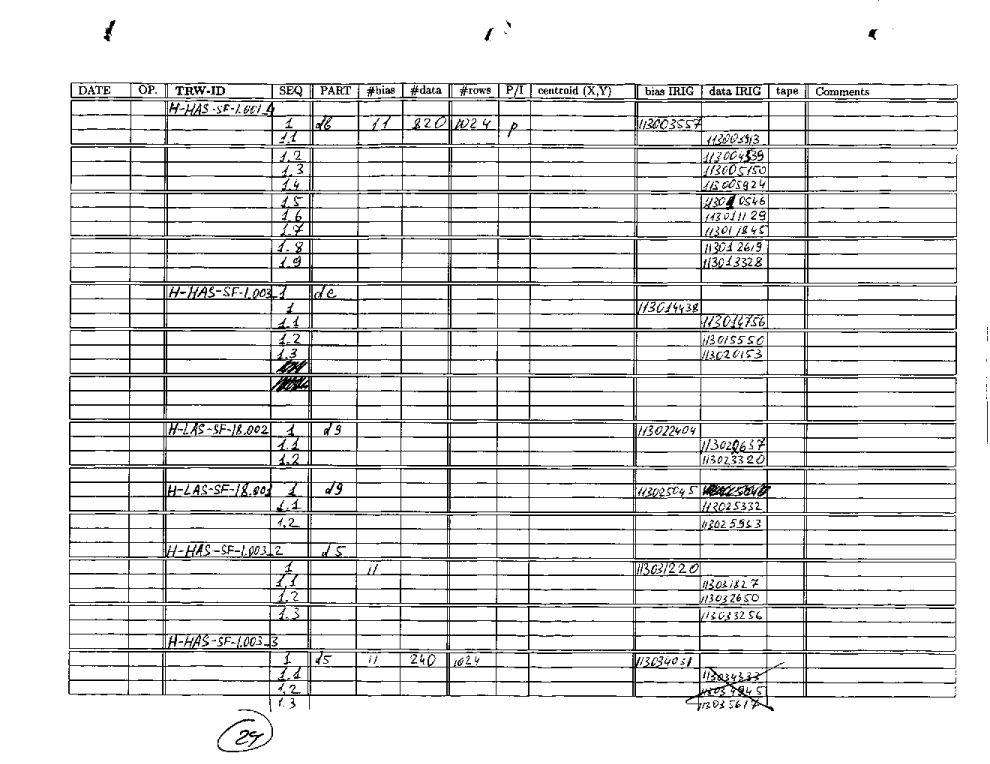 DATE OP. TRW-ID SEQ PART #bias #data #rows P/I centroid (X,Y) bias IRIG data IRIG tape Comments
H-HAS-SF-1.001_4
1 d6 11 820 1024 p 113003557
1.1 113003913
1.2 113004539
1.3 113005150
1.4 113005924
1.5 113010546
1.6 113011129
1.7 113011845
1.8 113012619
1.9 113013328
H-HAS-SF-1.003_1 de
1 113014438
1.1 113014756
1.2 113015550
1.3 113020153
H-LAS-SF-18.002 1 d9 113022404
1.1
1.2 113023320
H-LAS-SF-18.001 1 d9 113025045
1.1 113025332
1.2 113025953
H-HAS-SF-1.003_2 d5
1 11 113031220
1.1 113031827
1.2 113032650
1.3 113033256
H-HAS-SF-1.003_3
1 d5 11 240 1024 113034031
1.1 113034333
1.2 113034945
1.3 113035617
24